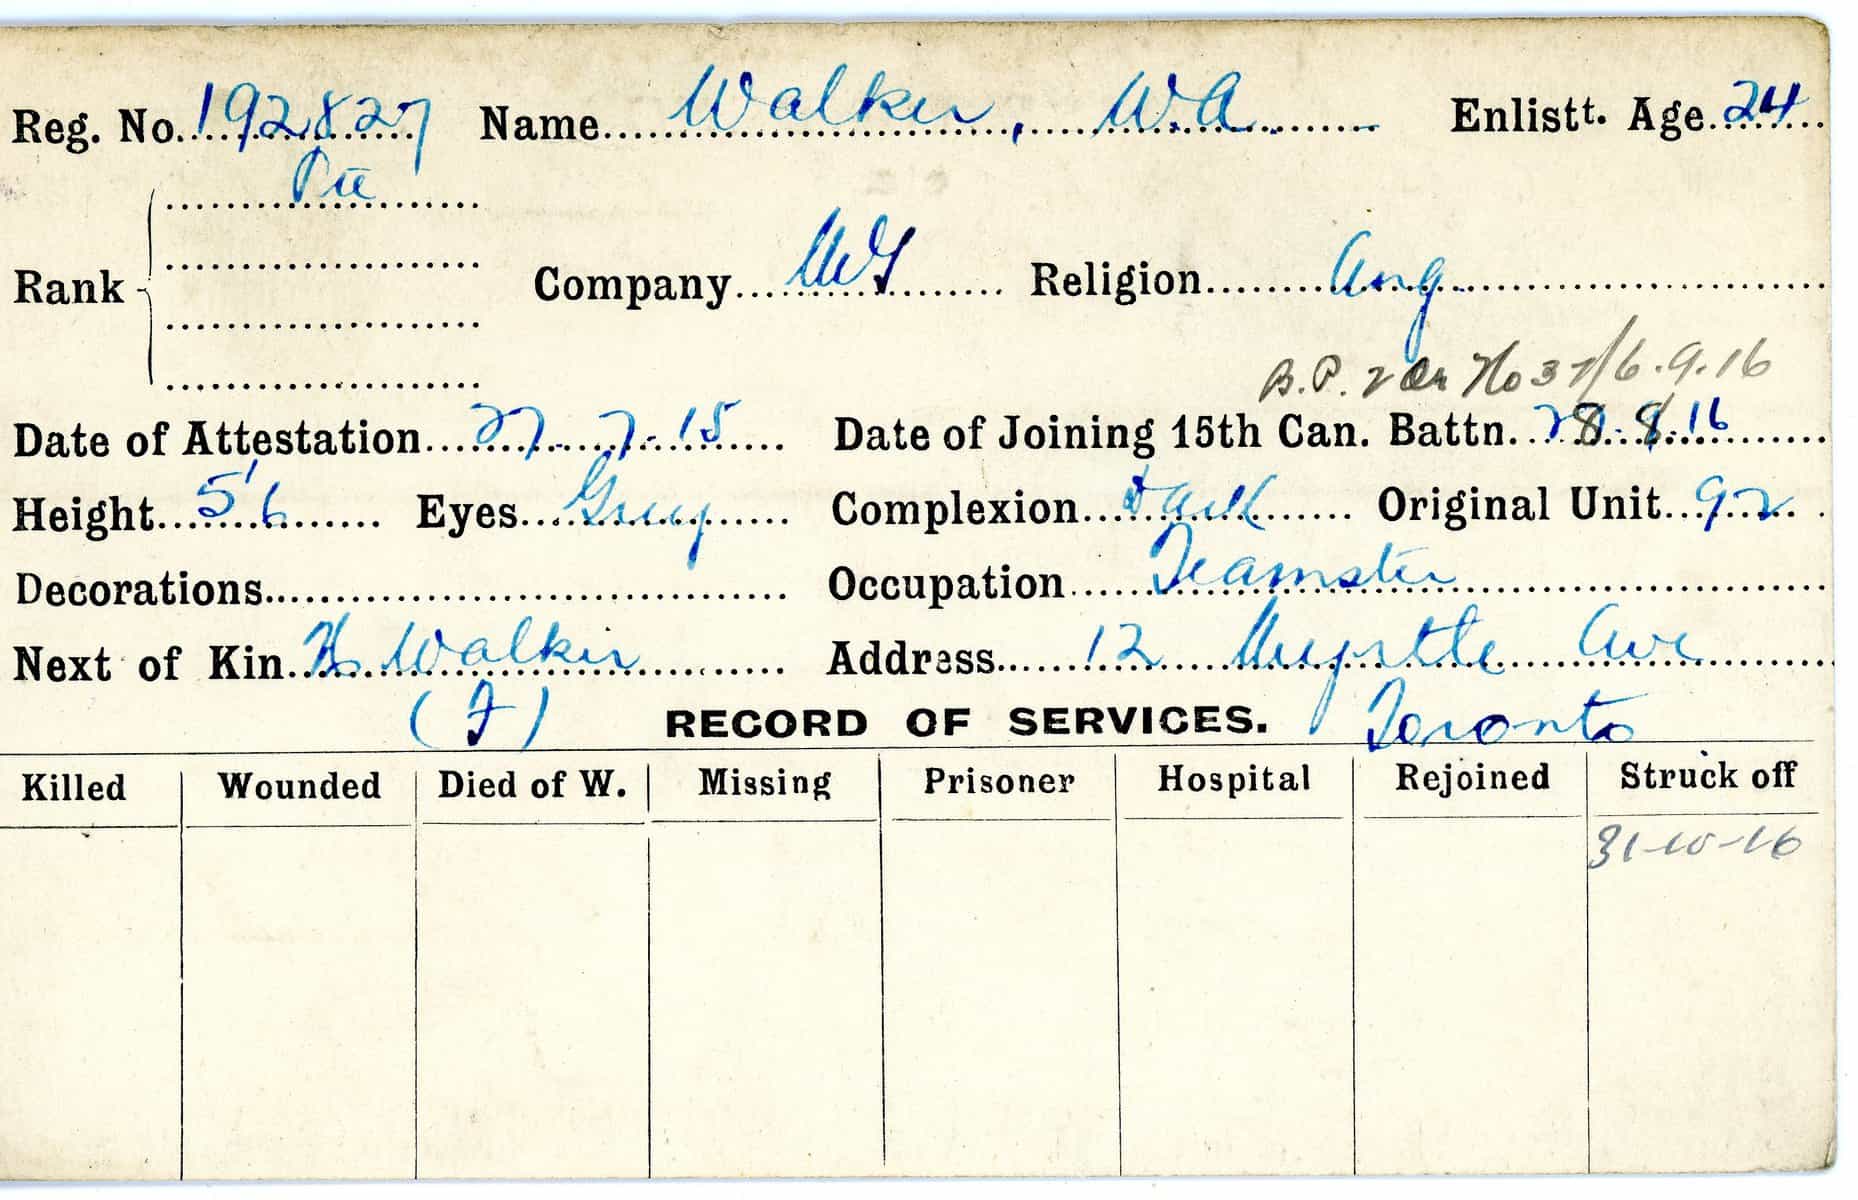 Reg. No. 192827 Name Walker, W.A. Enlistt. Age. 24
Pte
Rank Company MG Religion Ang.
B.P. 2 Or No 37/6.9.16
Date of Attestation 27.7.15 Date of Joining 15th Can. Battn. 28.8.16
Height 5'6 Eyes Grey Complexion Dark Original Unit 92
Decorations Occupation Teamster
Next of Kin Walker Address 12 Myrtle Ave
(F) RECORD OF SERVICES. Toronto
Killed Wounded Died of W. Missing Prisoner Hospital Rejoined Struck off
31-10-16